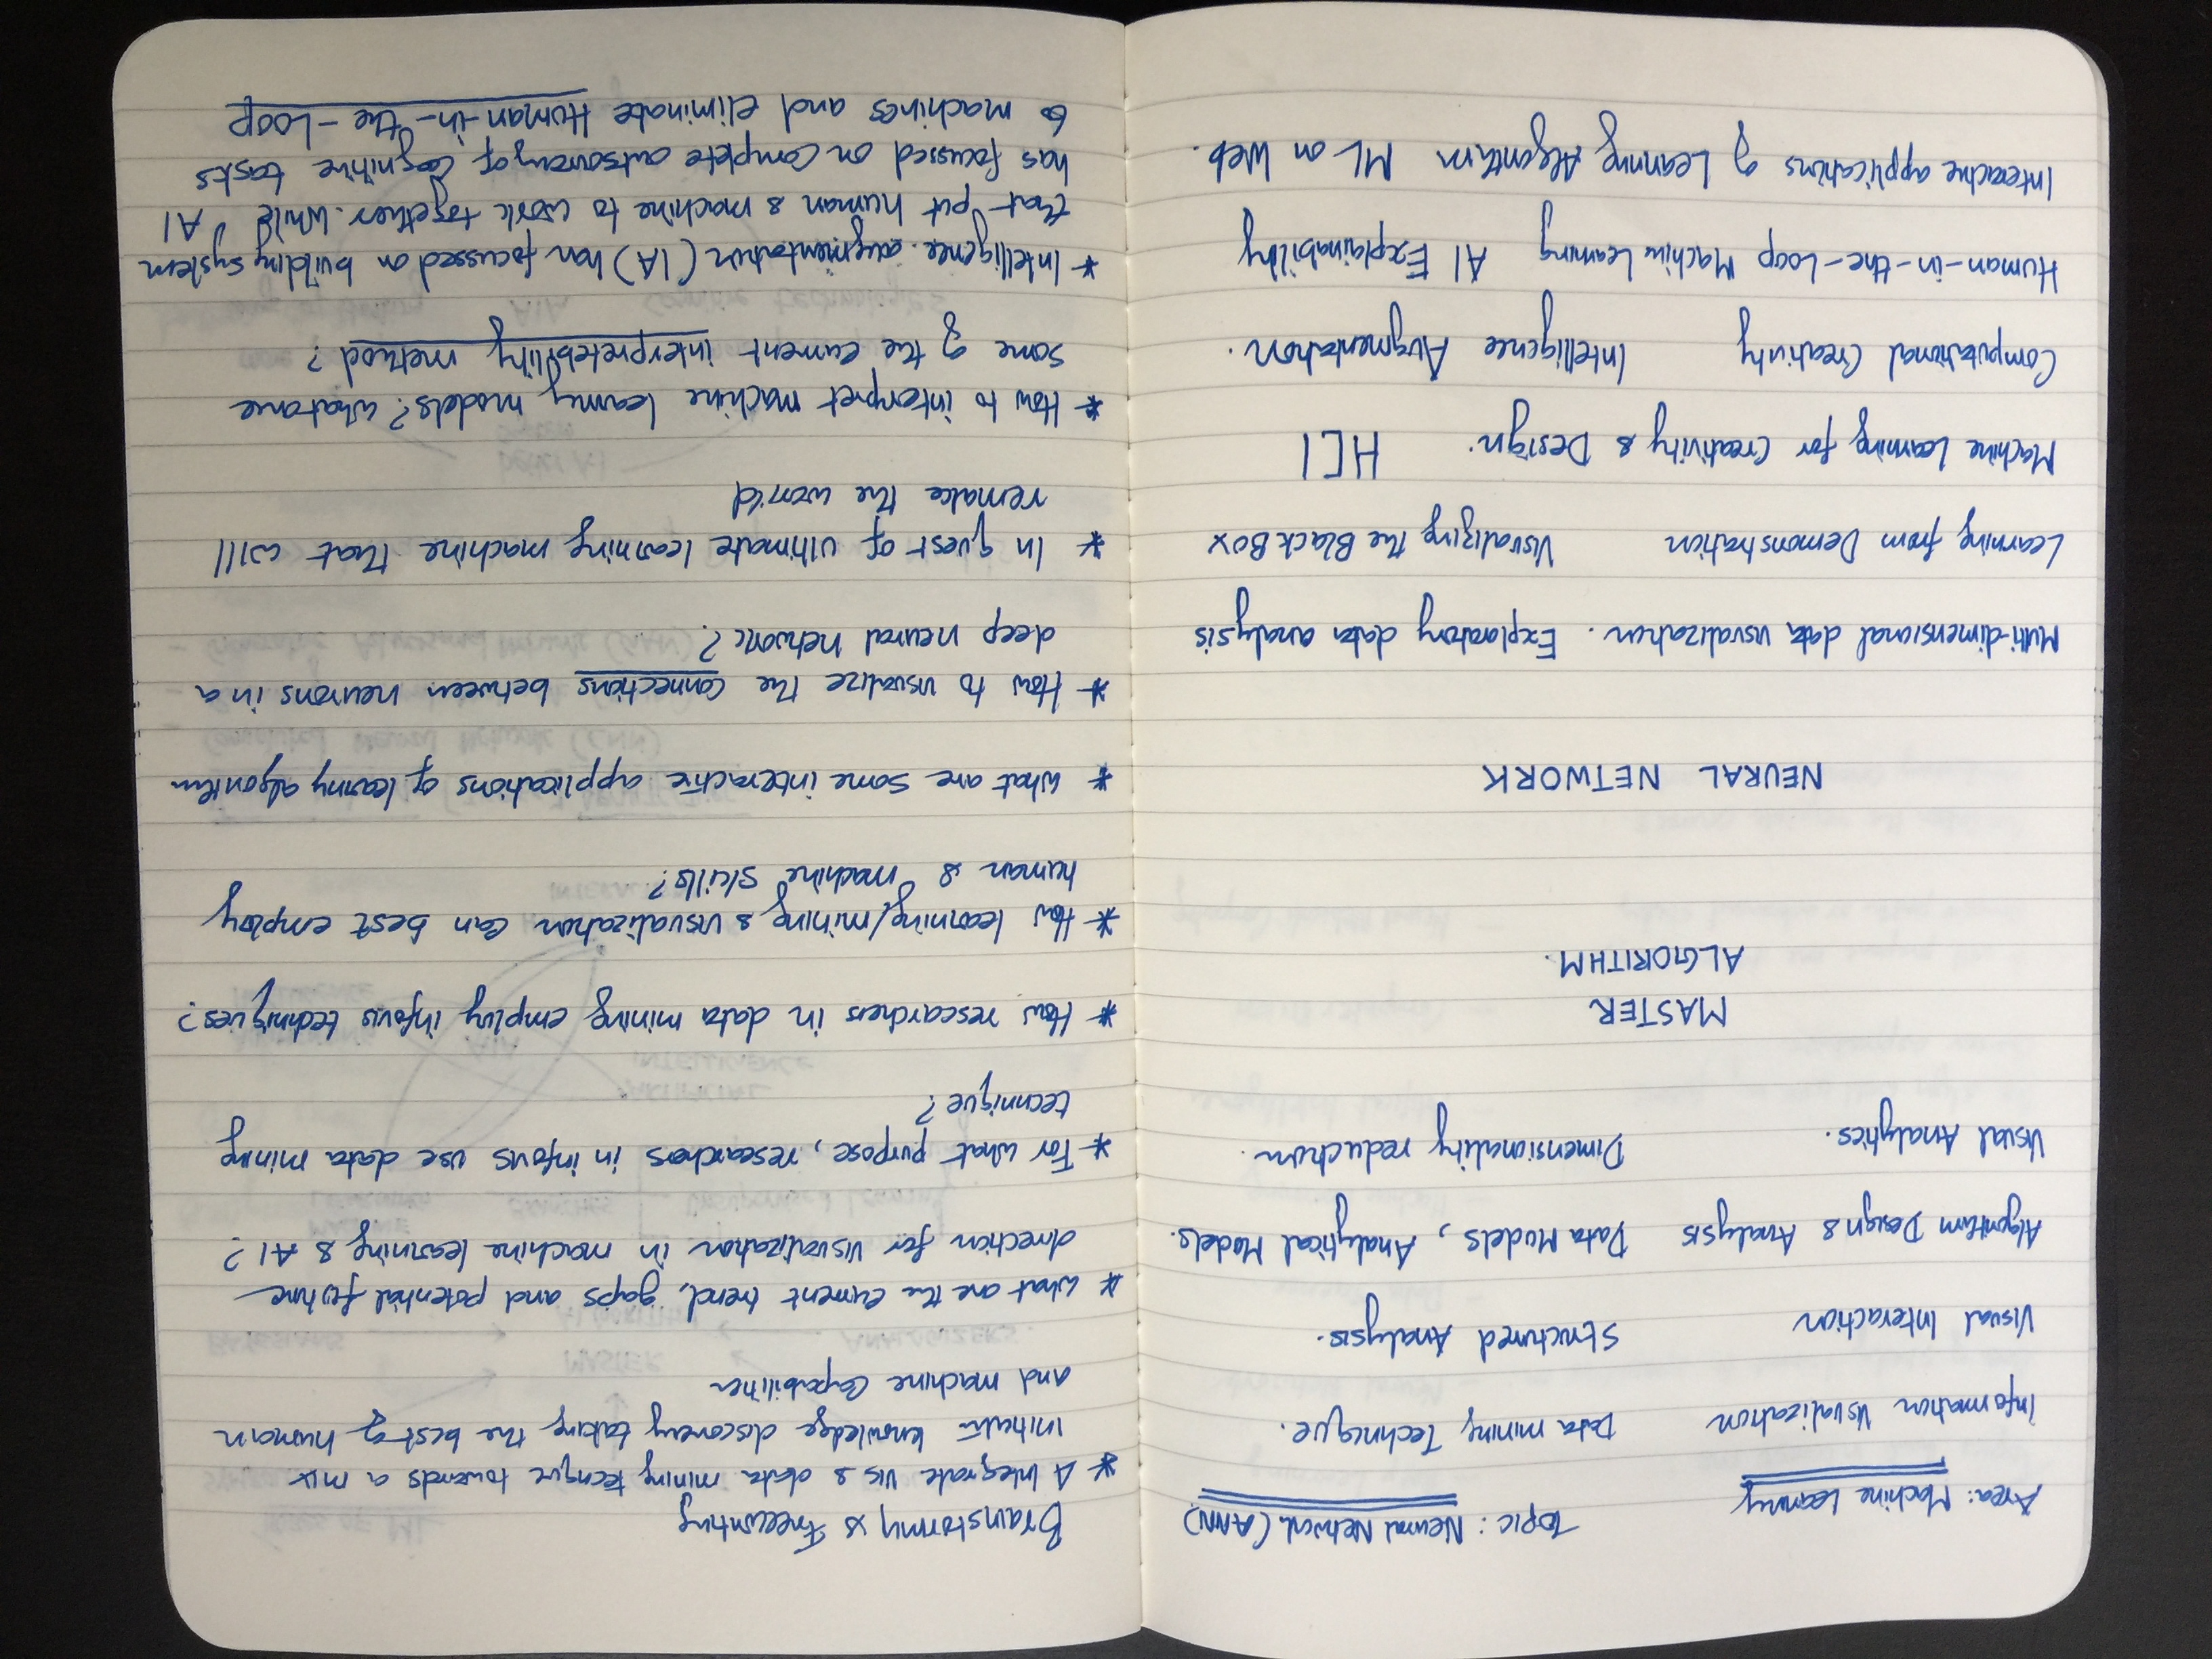 Area: Machine Learning Topic: Neural Network (ANN)
Information Visualization Data mining Technique.
Visual Interaction Structured Analysis.
Algorithm Design & Analysis Data Models, Analytical Models.
Visual Analytics. Dimensionality reduction.
MASTER
ALGORITHM.
NEURAL NETWORK
Multi-dimensional data visualization. Exploratory data analysis
Learning from Demonstration Visualizing the Black Box
Machine Learning for Creativity & Design. HCI
Computational Creativity Intelligence Augmentation.
Human-in-the-Loop Machine Learning AI Explainability
Interactive applications of Learning Algorithm ML on Web.
Brainstorming & Freewriting
* Integrate Vis & data mining tecnique towards a mix
initiative knowledge discovery taking the best of human
and machine capabilities
* what are the current trend, gaps and potential future
direction for visualization in machine learning & AI?
* For what purpose, researchers in infovis use data mining
tecnique?
* How researchers in data mining employ infovis techniques?
* How learning/mining & visualization can best employ
human & machine skills?
* what are some interactive applications of learning algorithm
* How to visualize the connections between neurons in a
deep neural network?
* In quest of ultimate learning machine that will
remake the world
* How to interpret machine learning models? what are
some of the current interpretebility method?
* Intelligence augmentation (IA) has focussed on building system
that put human & machine to work together. While AI
has focussed on complete outsourcing of cognitive tasks
to machines and eliminate Human-in-the-Loop